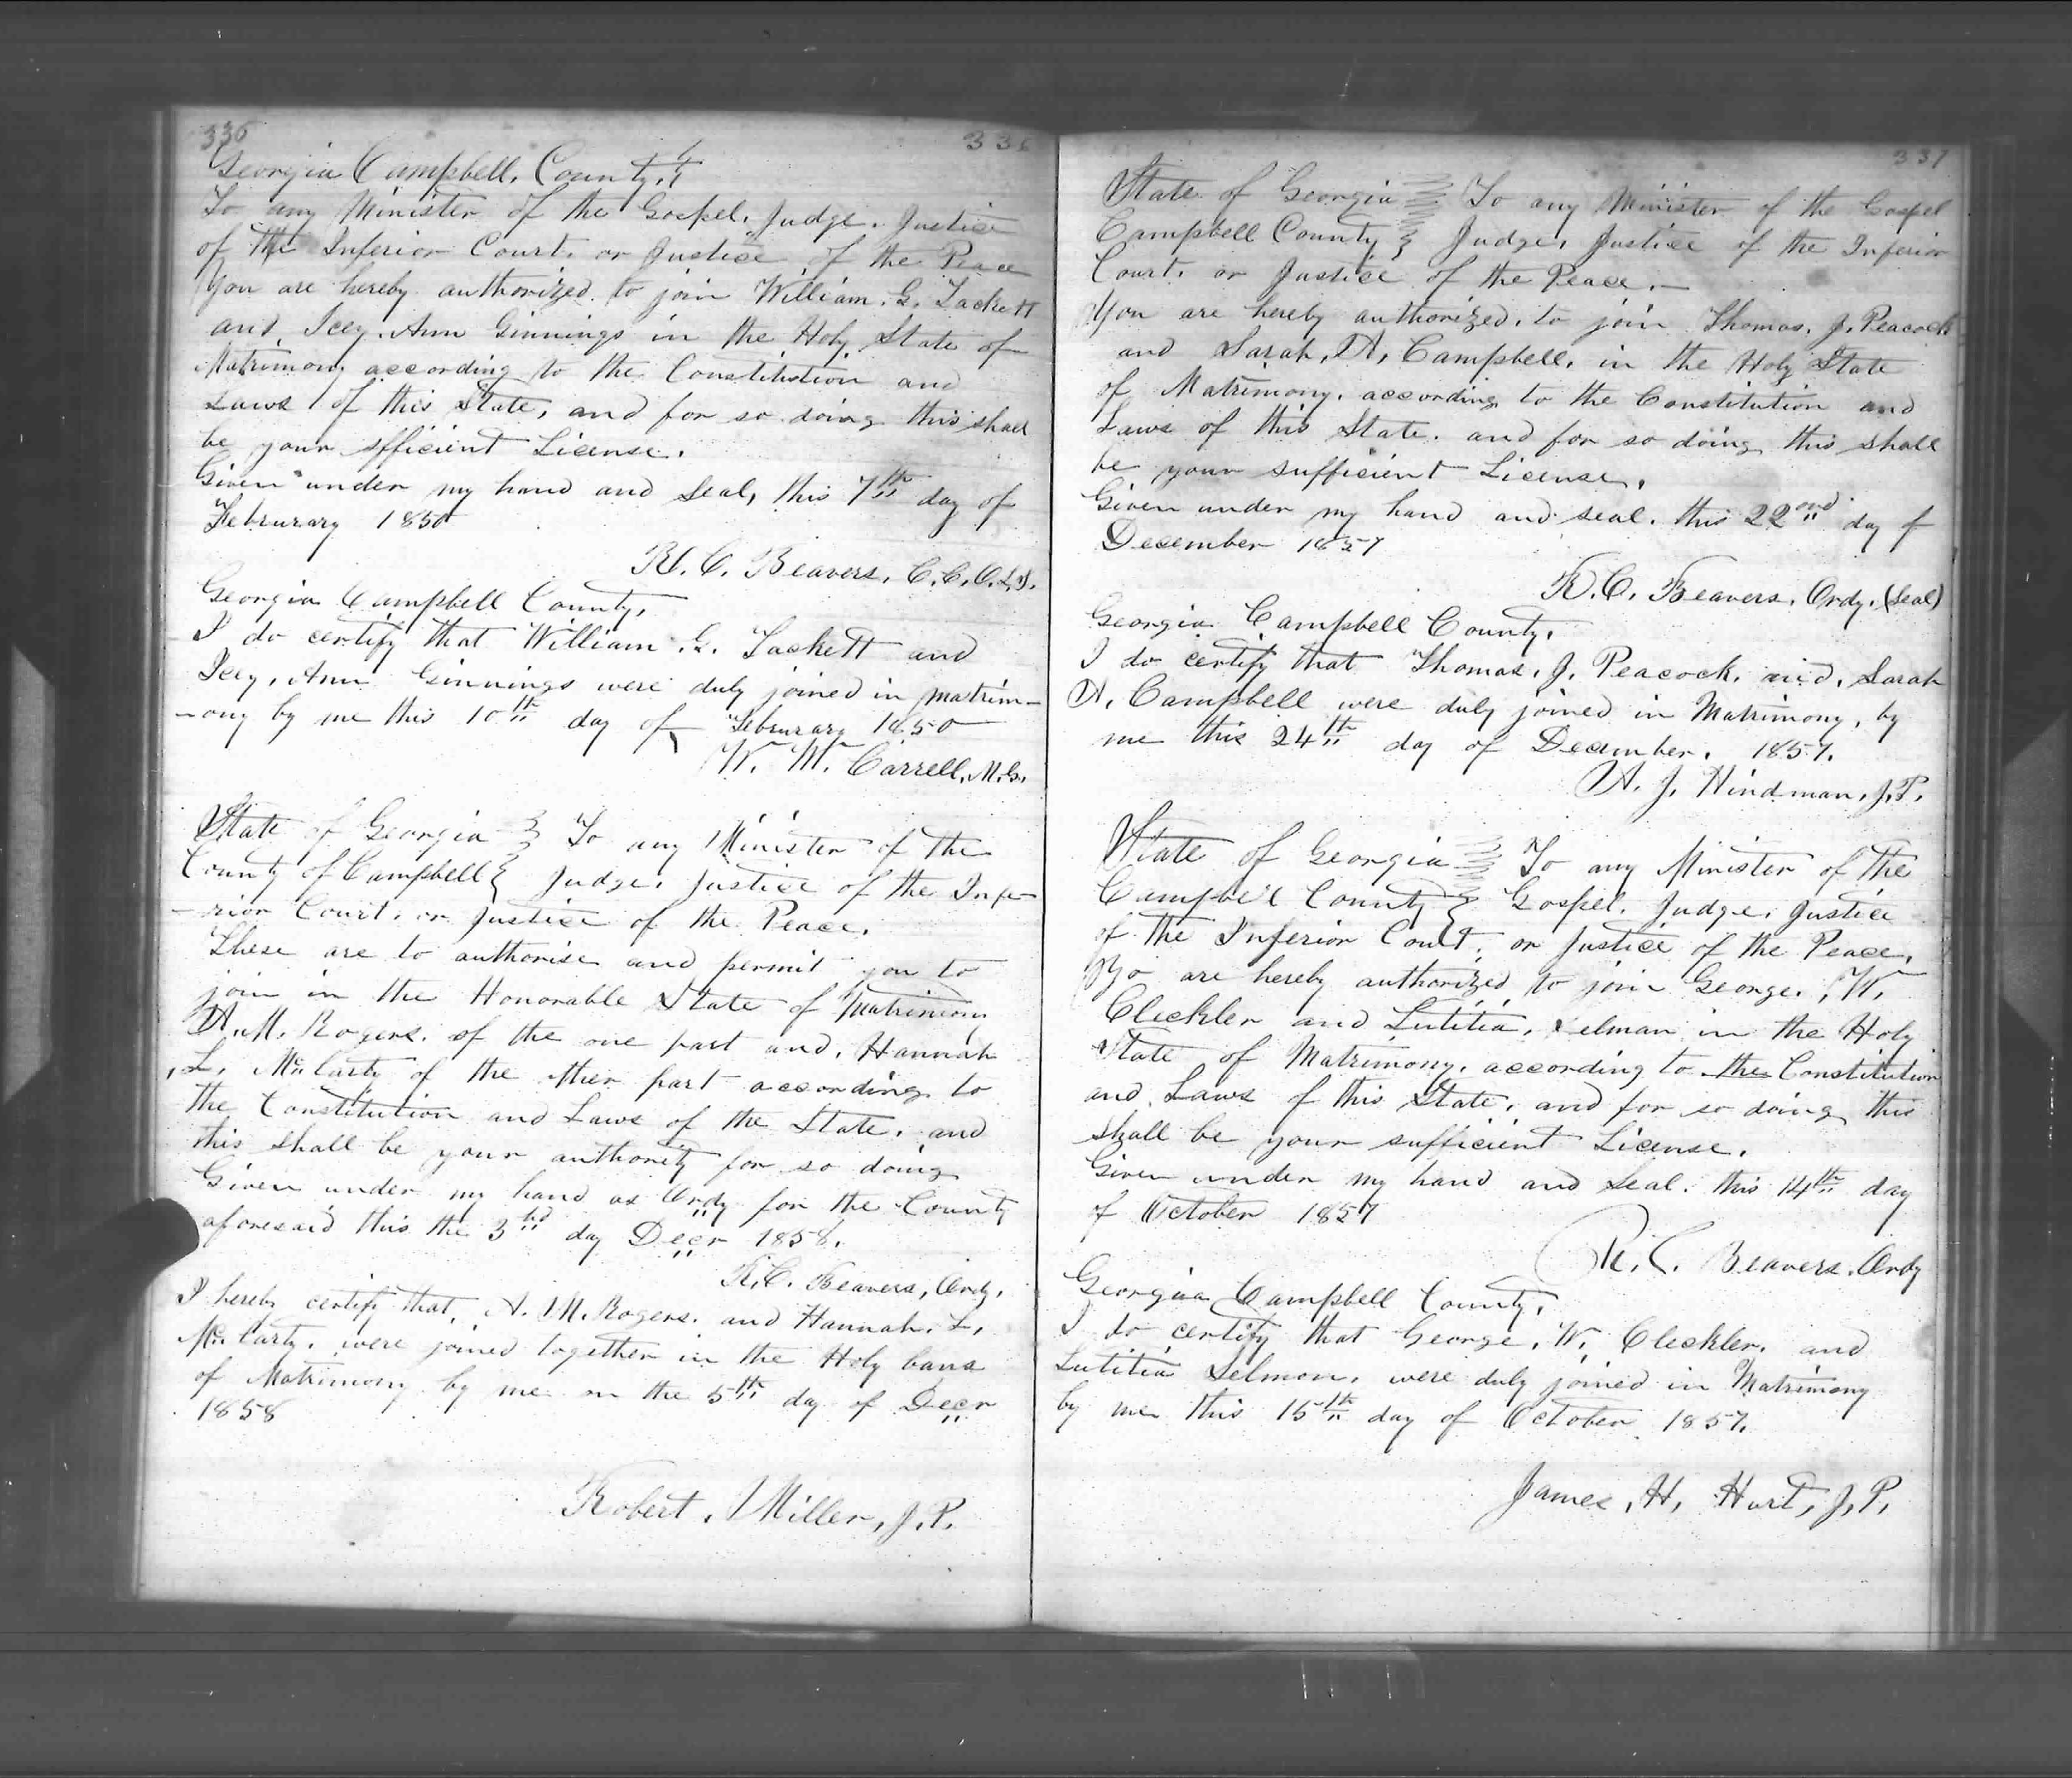 336
336
Georgia Campbell, County,
To any Minister of the Gospel, Judge, Justice
of the Inferior Court, or Justice of the Peace
You are hereby authorized, to join William. G. Tackett
and Icey, Ann Ginnings in the Holy State of
Matrimony according to the Constitution and
Laws of this State, and for so doing this shall
be your sfficient License.
Given under my hand and seal, this 7th day of
Februrary 1850
R. C. Beavers, C.C.O.
Georgia Campbell County,
I do certify that William G. Tackett and
Icey, Ann Ginnings were duly joined in matrim-
-ony by me this 10th day of Februrary 1850
W. M. Carrell, M.G.
State of Georgia } To any Minister of the
County of Campbell } Judge, Justice of the Infe-
-rior Court, or Justice of the Peace.
These are to authorise and permit you to
join in the Honorable State of Matrimony
A. M. Rogers, of the one part and, Hannah
L, McCarty of the other part according to
the Constitution and Laws of the State, and
this shall be your authority for so doing
Given under my hand as Ordy for the County
aforesaid this the 3rd day Decr 1858.
R.C. Beavers, Ordy,
I hereby certify that, A. M. Rogers, and Hannah, L,
McCarty, were joined together in the Holy bans
of Matrimony by me on the 5th day of Decr
1858
Robert, Miller, J.P.
337
State of Georgia } To any Minister of the Gospel
Campbell County } Judge, Justice of the Inferior
Court, or Justice of the Peace.
You are hereby authorized, to join Thomas, J. Peacock
and Sarah, A, Campbell, in the Holy State
of Matrimony, according to the Constitution and
Laws of this State, and for so doing this shall
be your sufficient License,
Given under my hand and seal, this 22nd day of
December 1857
R.C. Beavers, Ordy. (Seal)
Georgia Campbell County,
I do certify that Thomas, J, Peacock, and, Sarah
A, Campbell were duly joined in Matrimony, by
me this 24th day of December, 1857.
A. J. Hindman, J.P.
State of Georgia } To any Minister of the
Campbell County } Gospel, Judge, Justice
of the Inferior Court, or Justice of the Peace,
Yo are hereby authorized to join George, W,
Cleckler and Lutitia, Selman in the Holy
State of Matrimony, according to the Constitution
and Laws of this State, and for so doing this
shall be your sufficient License,
Given under my hand and Seal, this 14th day
of October 1857
R. C. Beavers, Ordy
Georgia Campbell County,
I do certify that George, W, Cleckler, and
Lutitia Selmon, were duly joined in Matrimony
by me this 15th day of October 1857.
James, H, Hurt, J,P,